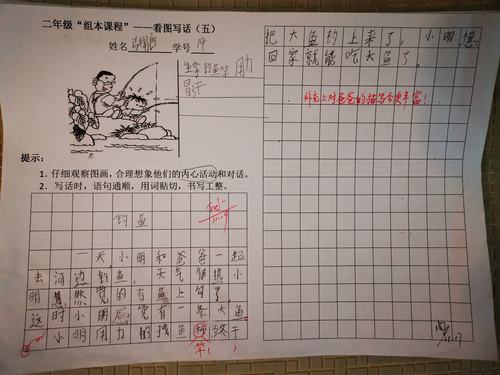 二年级“组本课程”——看图写话（五）
姓名 学号 19
生字 钓鱼竿 助
提示：
1．仔细观察图画，合理想象他们的内心活动和对话。
2．写话时，语句通顺，用词贴切，书写工整。
钓鱼
一天小明和爸爸一起
去河边钓鱼，天气很热小
明忽然觉的有鱼上勾了，
这时小明感觉有一条大鱼
小明用力的找鱼 终于
竿（ ）
把大鱼钓上来了，小明想
回家就能吃大鱼了。
补充上对爸爸的描写会更丰富！